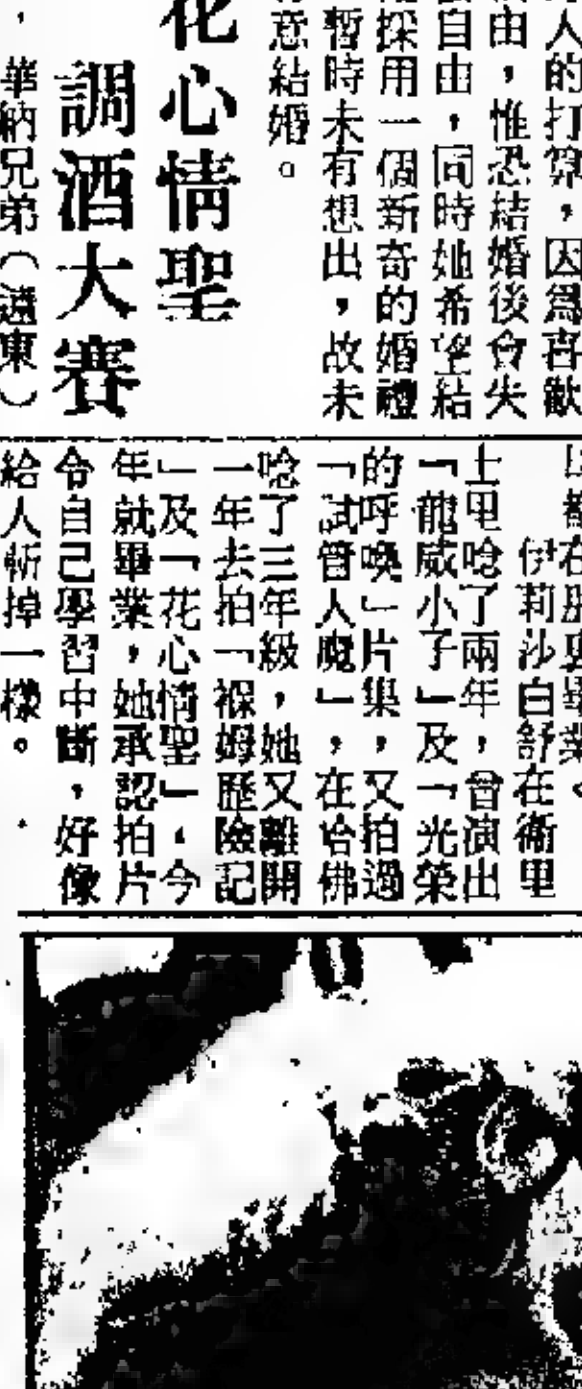 人的打算，因爲喜歡
由，惟恐結婚後會失
自由，同時她希望結
採用一個新奇的婚禮
暫時未有想出，故未
意結婚。
花心情聖
調酒大賽
，華納兄弟（遠東）
在
畢業。
伊莉沙白舒在衞里
士里唸了兩年，曾演出
「龍威小子」及「光榮
的呼喚」片集，又拍過
「試管人魔」，在哈佛
唸了三年級，她又離開
一年去拍「褓姆歷險記
」及「花心情聖」，今
年就畢業，她承認拍片
令自己學習中斷，好像
給人斬掉一樣。